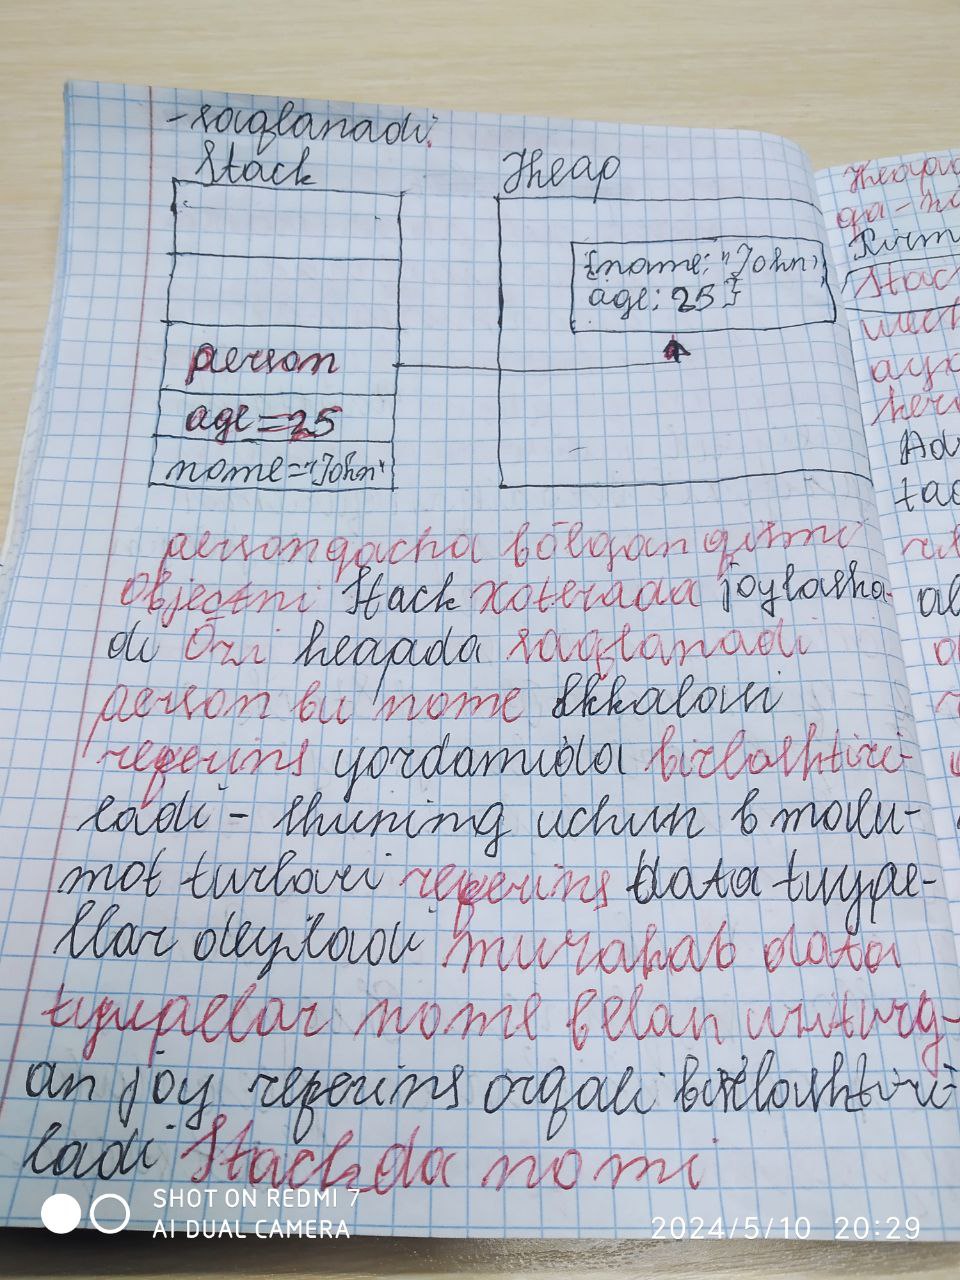 -saqlanadi.
Stack
Heap
{name: "John",
age: 25}
person
age=25
name="John"
persongacha bõlgan qismi
Objectni Stack xoteraaa joylasha-
di Õzi heapda saqlanadi
person bu nome Ekkalasi
referins yordamida birlashtiri-
ladi - shuning uchun b malu-
mot turlari referins data tuype-
llar deyiladi murakab data
tyupellar nome belan uriturg-
an joy referins orqali birlashtiri-
ladi Stackda nomi
Heap
ga-na
Stac
SHOT ON REDMI 7
AI DUAL CAMERA
2024/5/10 20:29